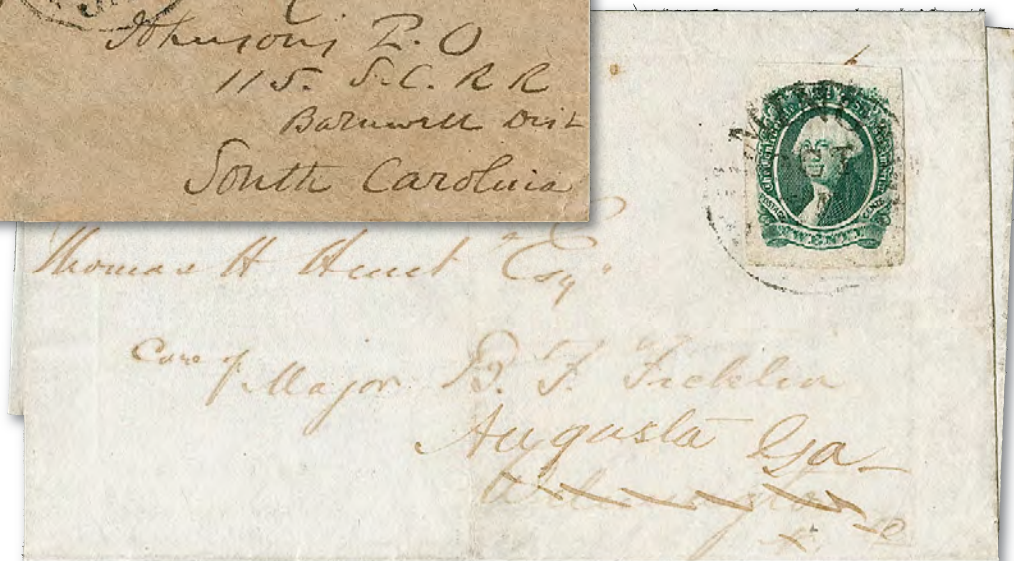 Johnson's P.O
115. S.C. R R
Barnwell Dist
South Carolina
Thomas H Hunt Esqr
Care of Major B. F. Ficklin
Augusta Ga
Wilmington
TWENTY